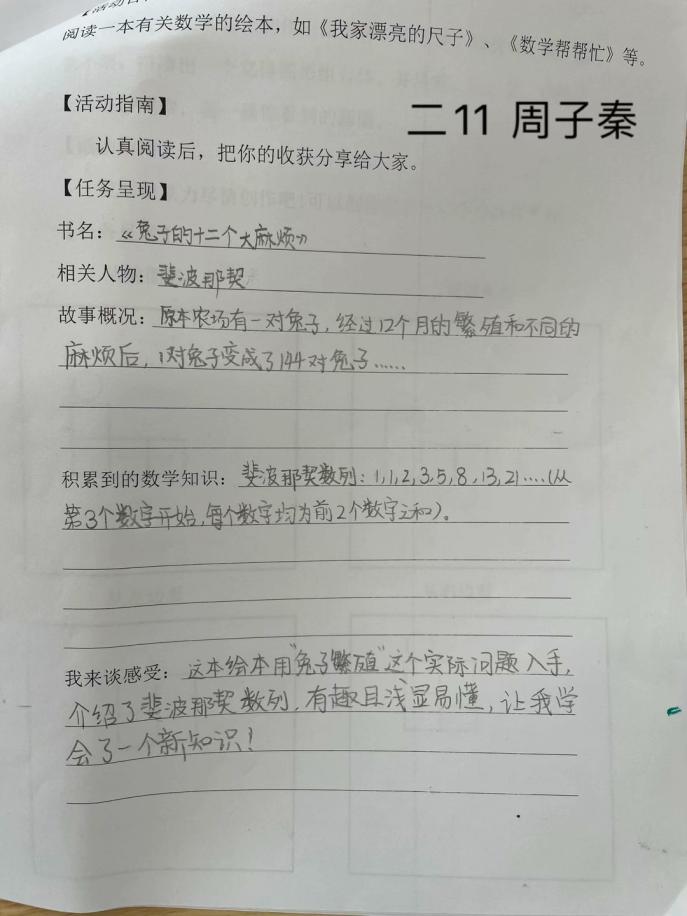 【活动目
阅读一本有关数学的绘本，如《我家漂亮的尺子》、《数学帮帮忙》等。
【活动指南】
二11 周子秦
认真阅读后，把你的收获分享给大家。
【任务呈现】
书名：《兔子的十二个大麻烦》
相关人物：斐波那契
故事概况：原本农场有一对兔子，经过12个月的繁殖和不同的
麻烦后，1对兔子变成了144对兔子……
积累到的数学知识：斐波那契数列：1,1,2,3,5,8,13,21……(从
第3个数字开始,每个数字均为前2个数字之和)。
我来谈感受：这本绘本用"兔子繁殖"这个实际问题入手,
介绍了斐波那契数列,有趣且浅显易懂,让我学
会了一个新知识！